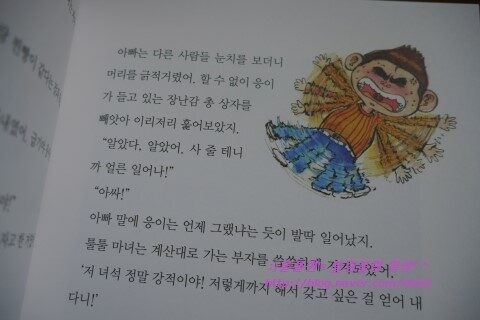 아빠는 다른 사람들 눈치를 보더니
머리를 긁적거렸어. 할 수 없이 웅이
가 들고 있는 장난감 총 상자를
빼앗아 이리저리 훑어보았지.
“알았다, 알았어. 사 줄 테니
까 얼른 일어나!”
“아싸!”
아빠 말에 웅이는 언제 그랬냐는 듯이 발딱 일어났지.
툴툴 마녀는 계산대로 가는 부자를 씁쓸하게 지켜보았어.
‘저 녀석 정말 강적이야! 저렇게까지 해서 갖고 싶은 걸 얻어 내
다니!’